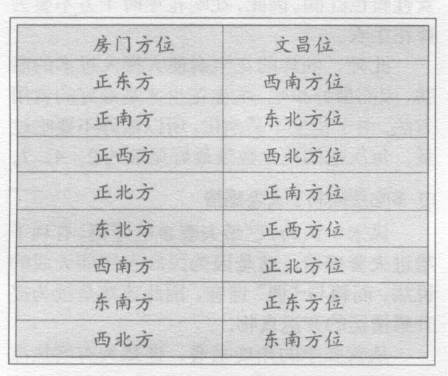 房门方位 文昌位
正东方 西南方位
正南方 东北方位
正西方 西北方位
正北方 正南方位
东北方 正西方位
西南方 正北方位
东南方 正东方位
西北方 东南方位